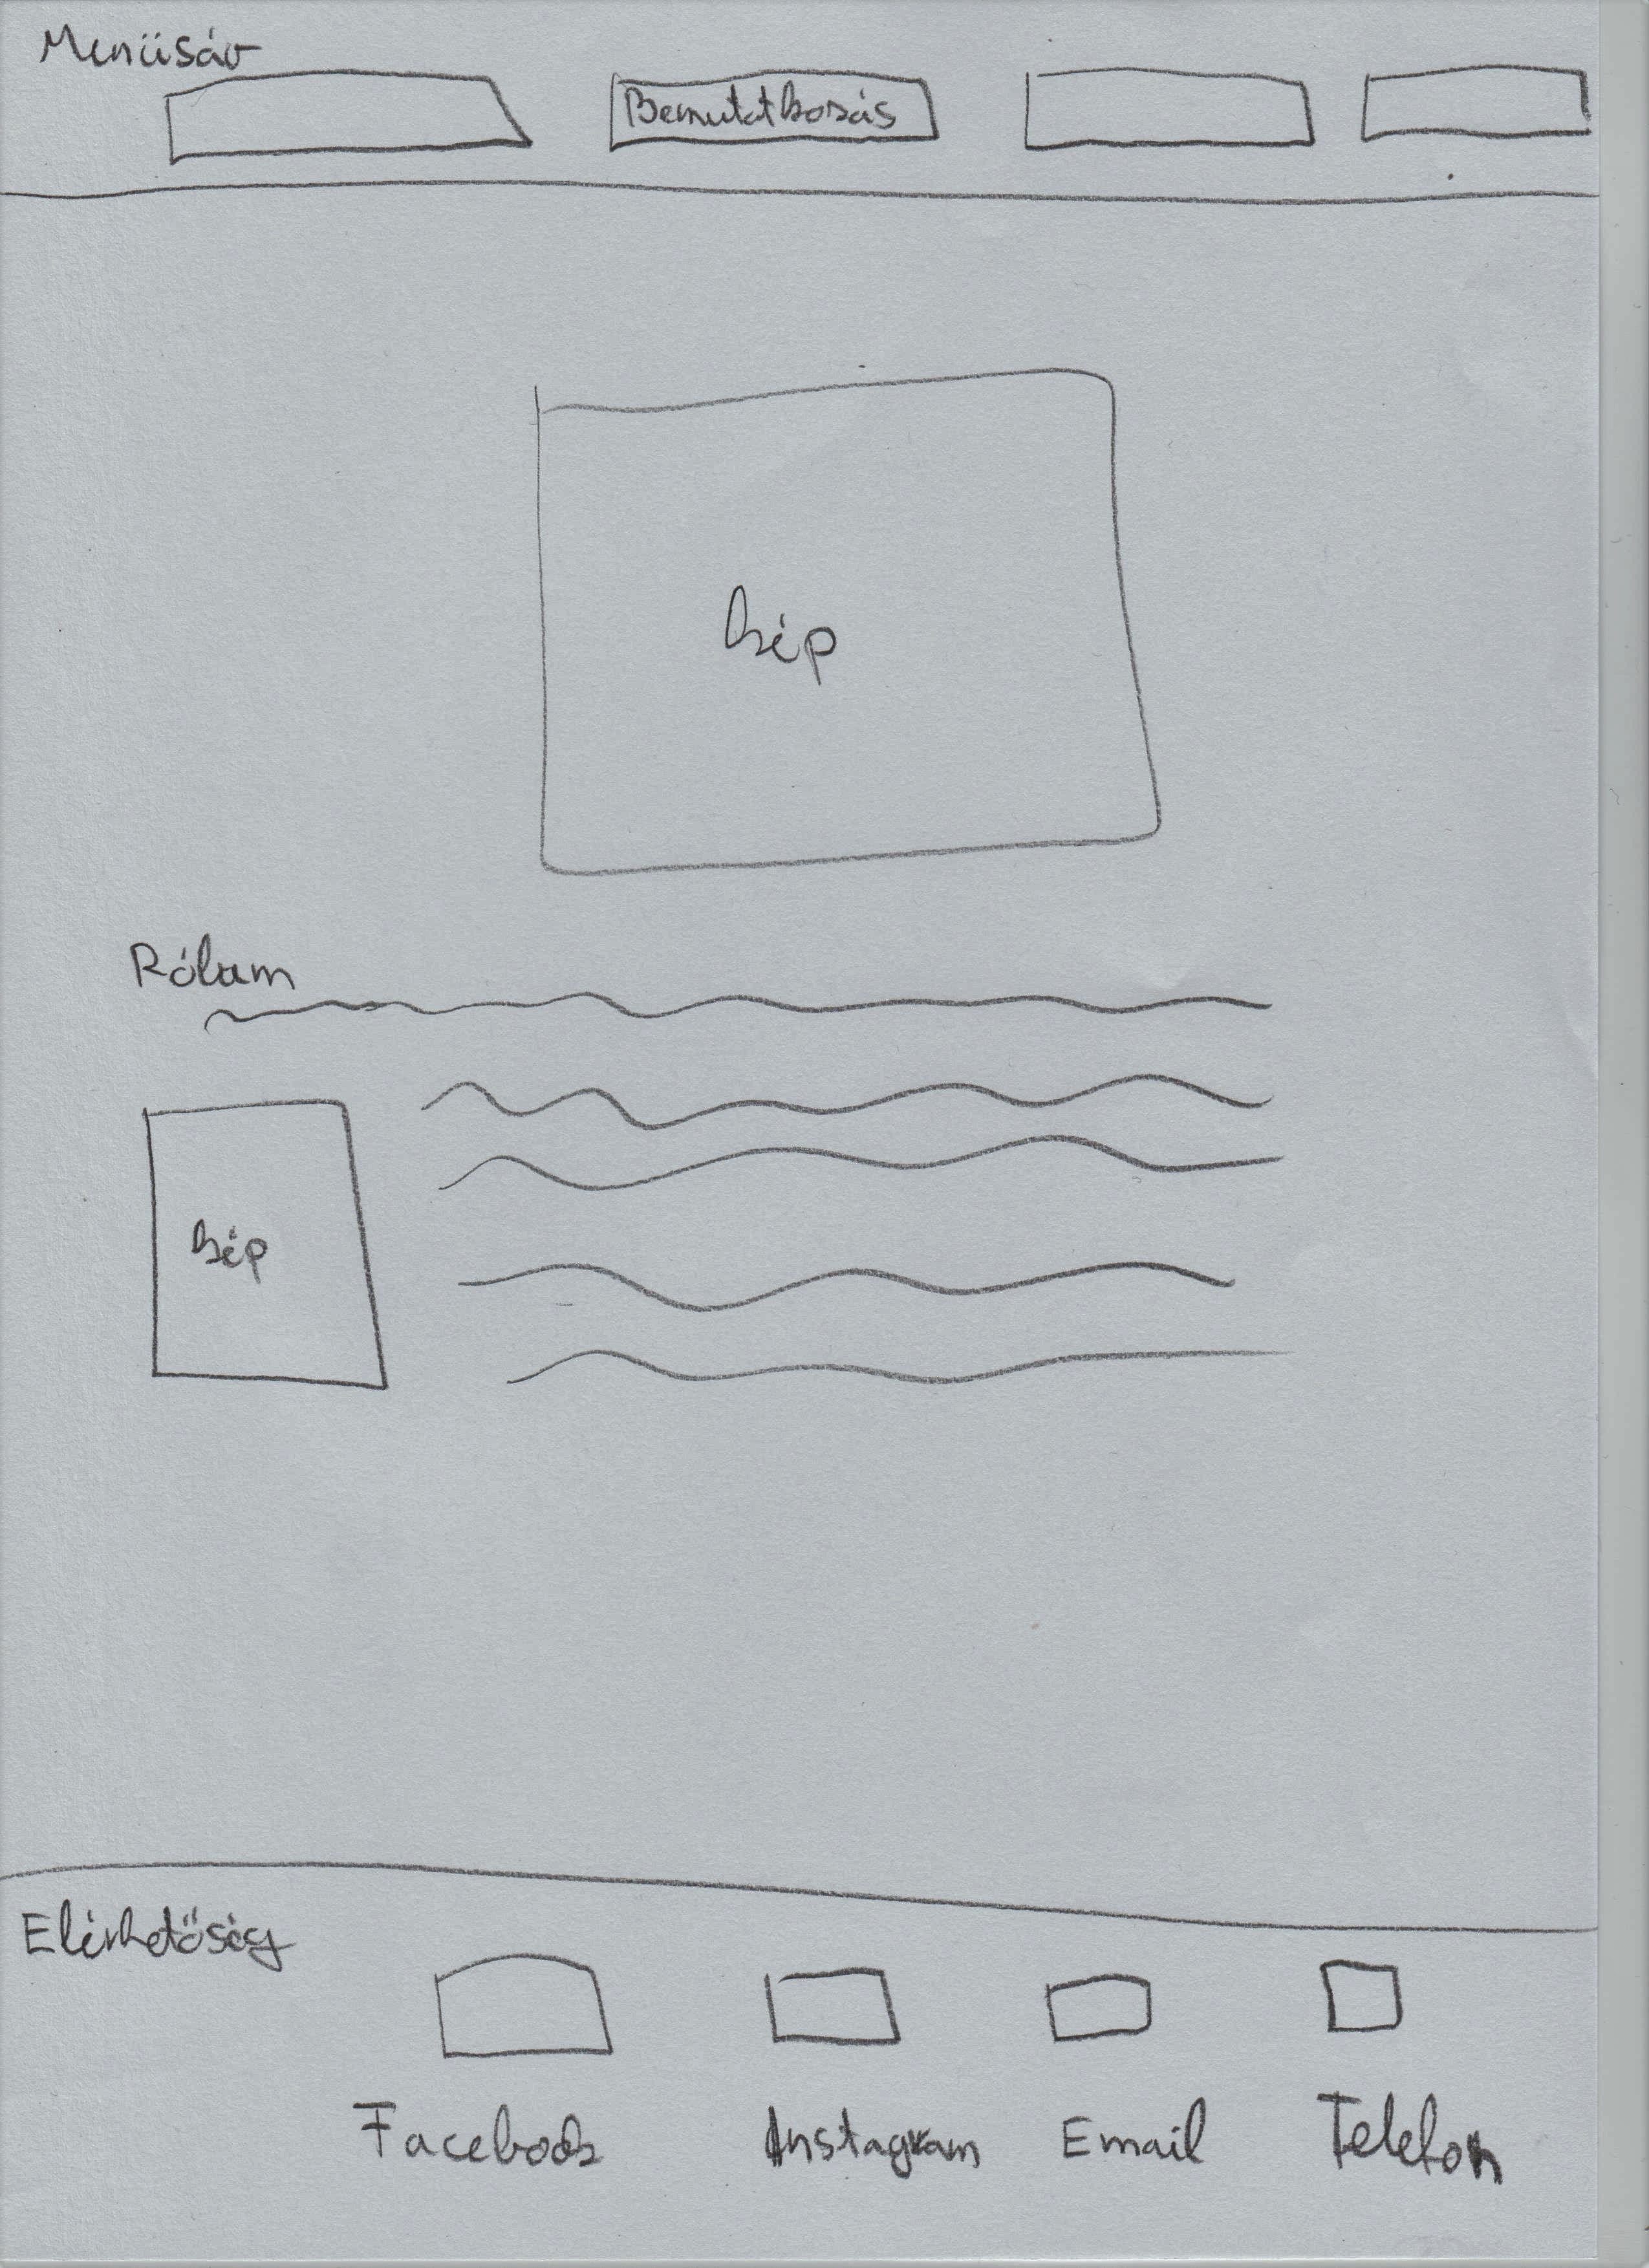 Menüsáv
Bemutatkozás
kép
Rólam
kép
Elérhetőség
Facebook Instagram Email Telefon